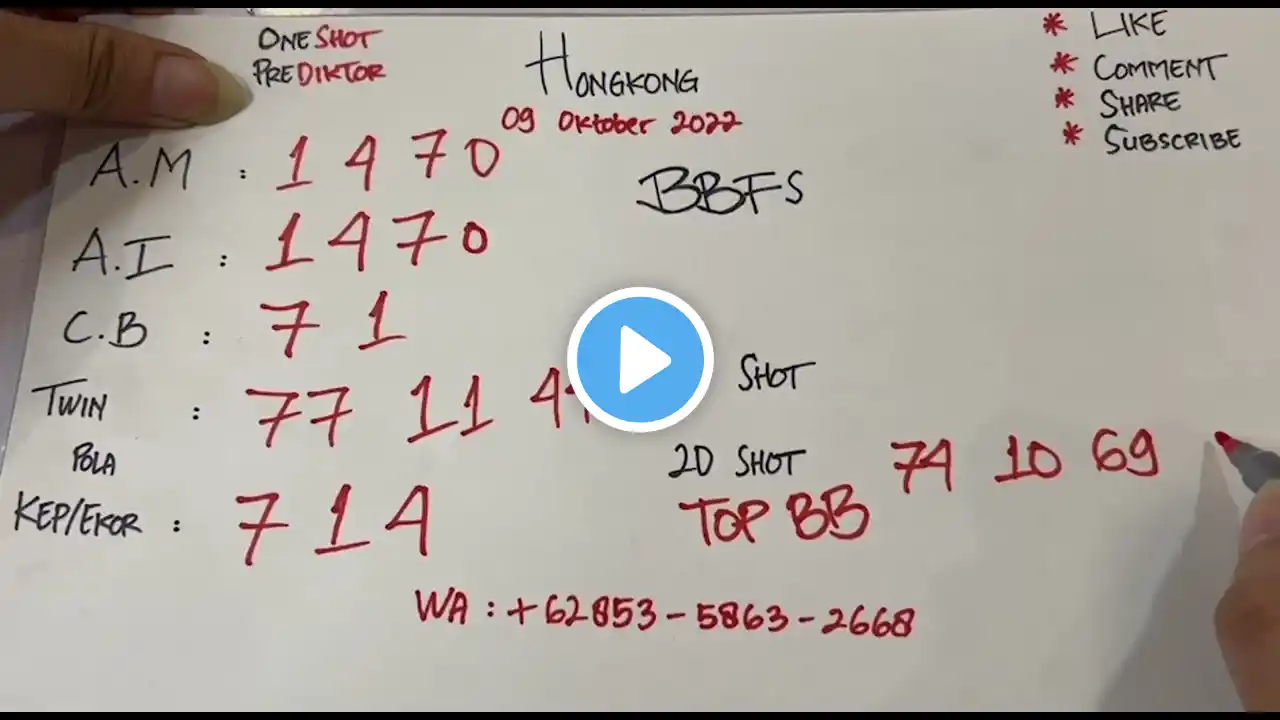 ONE SHOT
PREDIKTOR
HONGKONG
09 Oktober 2022
* LIKE
* COMMENT
* SHARE
* SUBSCRIBE
A.M : 1 4 7 0
A.I : 1 4 7 0
C.B : 7 1
TWIN : 77 11
POLA
KEP/EKOR : 7 1 4
BBFS
SHOT
2D SHOT 74 10 69
TOP BB
WA : +62853-5863-2668